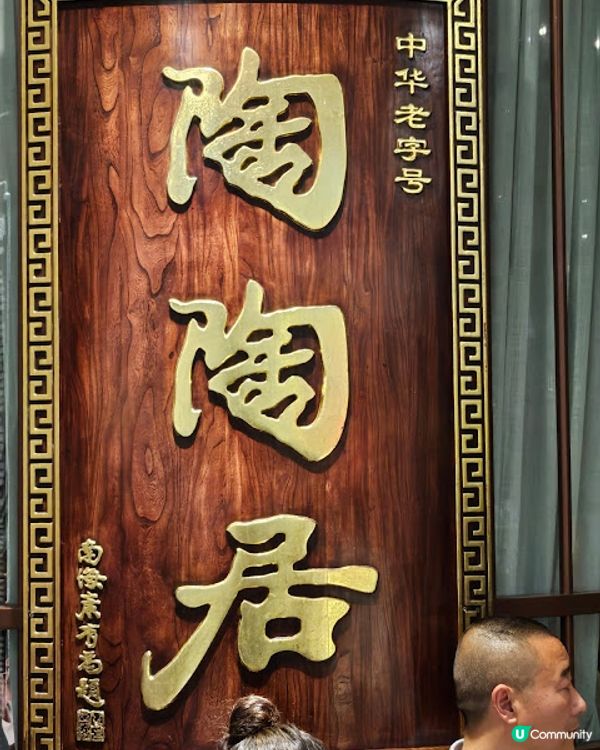 中华老字号
陶陶居
南海康有為題
U Community